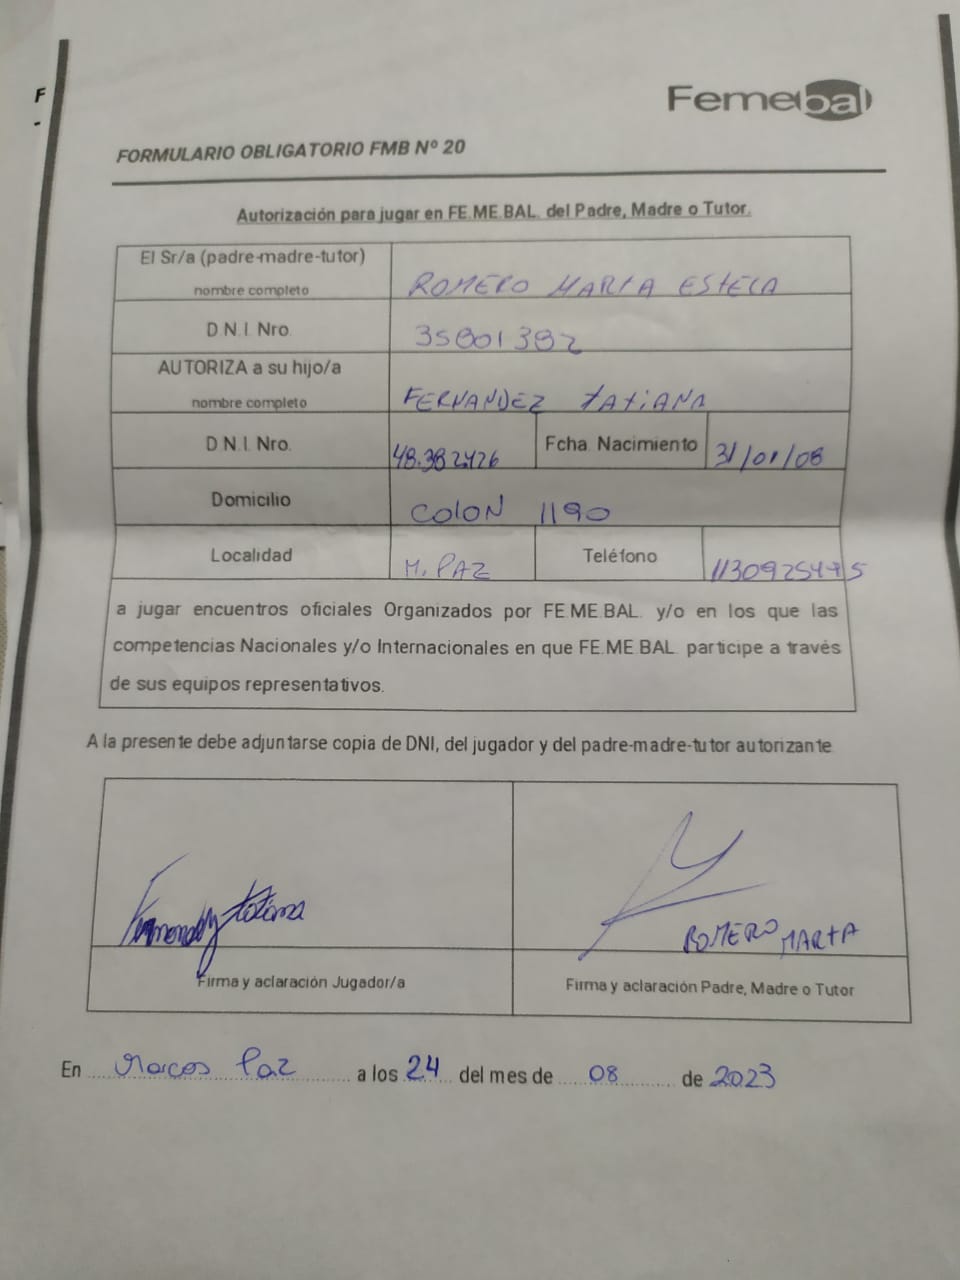 F
-
Femebal
FORMULARIO OBLIGATORIO FMB Nº 20
Autorización para jugar en FE.ME.BAL. del Padre, Madre o Tutor.
El Sr/a (padre-madre-tutor) nombre completo ROMERO MARTA ESTELA
D.N.I. Nro. 35801382
AUTORIZA a su hijo/a nombre completo FERNANDEZ TATIANA
D.N.I. Nro. 48.382.426 Fcha. Nacimiento 31/01/08
Domicilio COLON 1190
Localidad M. PAZ Teléfono 1130925475
a jugar encuentros oficiales Organizados por FE.ME.BAL. y/o en los que las
competencias Nacionales y/o Internacionales en que FE.ME.BAL. participe a través
de sus equipos representativos.
A la presente debe adjuntarse copia de DNI, del jugador y del padre-madre-tutor autorizante
Fernandez Tatiana
ROMERO MARTA
Firma y aclaración Jugador/a Firma y aclaración Padre, Madre o Tutor
En Marcos Paz a los 24 del mes de 08 de 2023